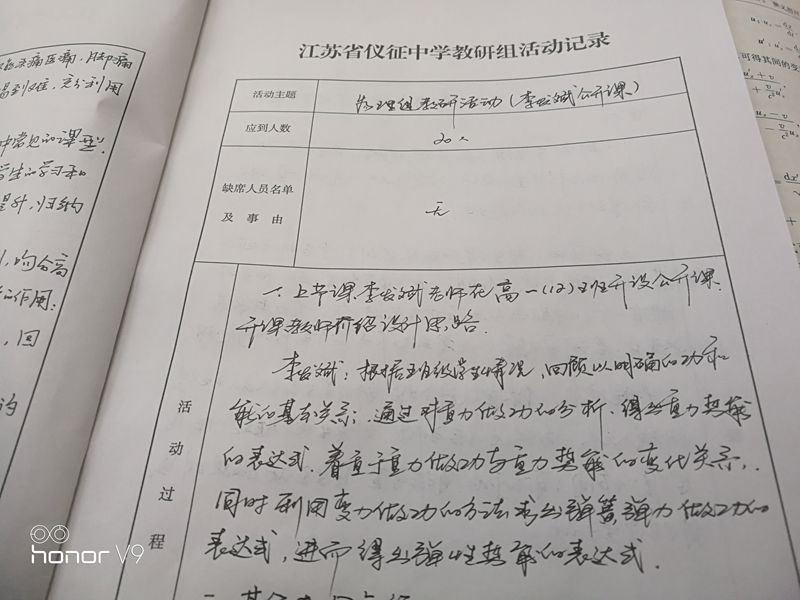 江苏省仪征中学教研组活动记录
活动主题
物理组教研活动（李发斌公开课）
应到人数
20人
缺席人员名单
及事由
无
活动过程
一、上节课李发斌老师在高一（12）班开设公开课.
开课教师介绍设计思路.
李发斌：根据班级学生情况，回顾以明确的功和
能的基本关系，通过对重力做功的分析，得出重力势能
的表达式．着重于重力做功与重力势能的变化关系，
同时利用变力做功的方法求出弹簧弹力做功的
表达式，进而得出弹性势能的表达式．
头痛医痛，脚痛
充分利用
中常见的课型
学生的学习和
提升，归纳
均分高
的作用：
回
的
可得其间的变
honor V9